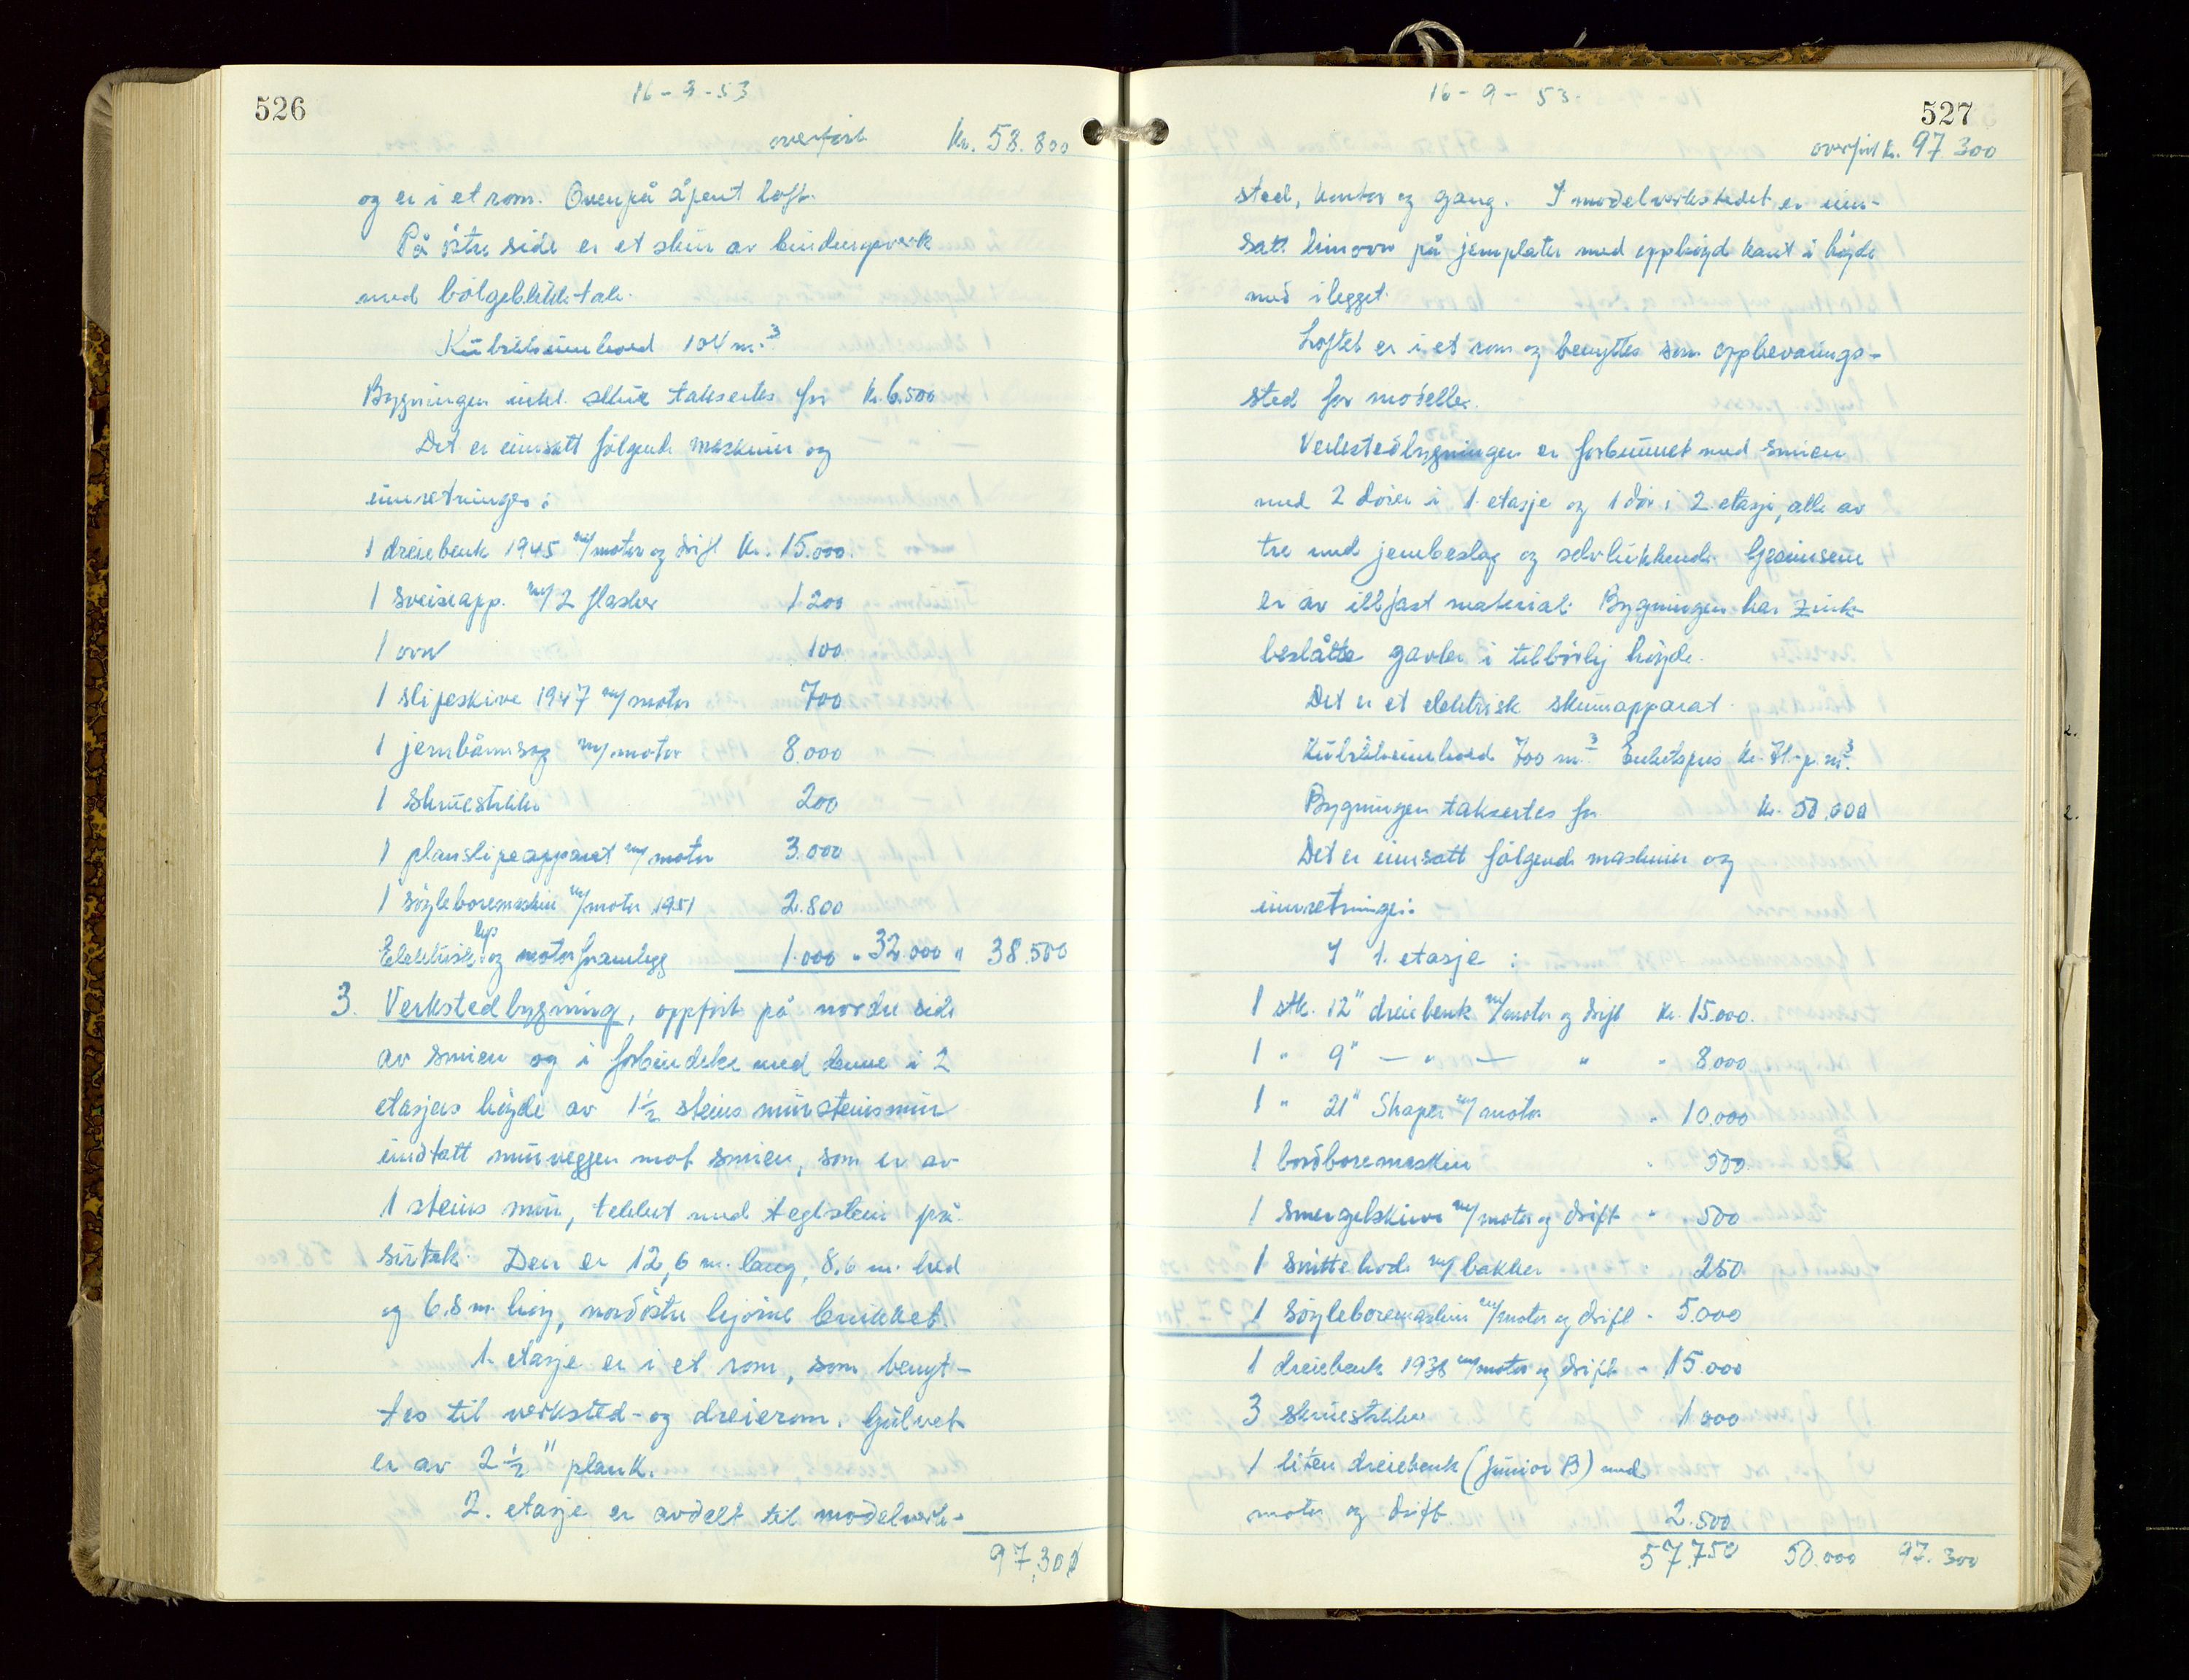 526
16-9-53
overført Kr. 58.800
og er i et rom. Ovenpå åpent loft.
På østre side er et skur av bindingsverk
med bølgeblikktak.
Kubikkinnhold 104 m.³
Bygningen inkl. skur takseres for Kr. 6.500
Det er innsatt følgende maskiner og
innretninger:
1 dreiebenk 1945 m/motor og drift Kr. 15.000.
1 sveiseapp. m/2 flasker 1200
1 ovn 100
1 slipeskive 1947 m/motor 700
1 jernbånnsag m/motor 8.000
1 skruestikke 200
1 planslipeapparat m/motor 3.000
1 søyleboremaskin m/motor 1951 2.800
Elektrisk lys og motorframlegg 1.000 " 32.000 " 38.500
3. Verkstedbygning, oppført på nordre side
av smien og i forbindelse med denne i 2
etasjers høyde av 1½ steins mursteinsmur
undtatt murveggen mot smien, som er av
1 steins mur, tekket med teglstein på
sutak. Den er 12,6 m. lang, 8,6 m. bred
og 6.8 m. høy, nordøstre hjørne brukket.
1. etasje er i et rom, som benyt-
tes til verksted- og dreierom. Gulvet
er av 2½" plank.
2. etasje er avdelt til modelverk-
97,300
527
16-9-53.
overført Kr. 97.300
sted, kontor og gang. I modelverkstedet er inn-
satt limovn på jernplater med opphøyd kant i høyde
med ilegget.
Loftet er i et rom og benyttes som oppbevarings-
sted for modeller.
Verkstedbygningen er forbunnet med smien
med 2 dører i 1. etasje og 1 dør i 2. etasje, alle av
tre med jernbeslag og selvlukkende. Gesimsene
er av illfast material. Bygningen har zink-
beslåtte gavler i tilbørlig høyde.
Det er et elektrisk skumapparat.
Kubikkinnhold 700 m.³ Enhetspris Kr. 71.- p. m³.
Bygningen takseres for Kr. 50.000
Det er innsatt følgende maskiner og
innretninger:
I 1. etasje:
1 stk. 12" dreiebenk m/motor og drift Kr. 15.000.
1 " 9" — " — " " 8.000
1 " 21" Shaper m/motor " 10.000
1 bordboremaskin " 500
1 smergelskive m/motor og drift " 500
1 snittehode m/bakker 250
1 søyleboremaskin m/motor og drift " 5.000
1 dreiebenk 1938 m/motor og drift " 15.000
3 skruestikker 1000
1 liten dreiebenk (Junior B) med
motor og drift 2.500
57.750 50.000 97.300